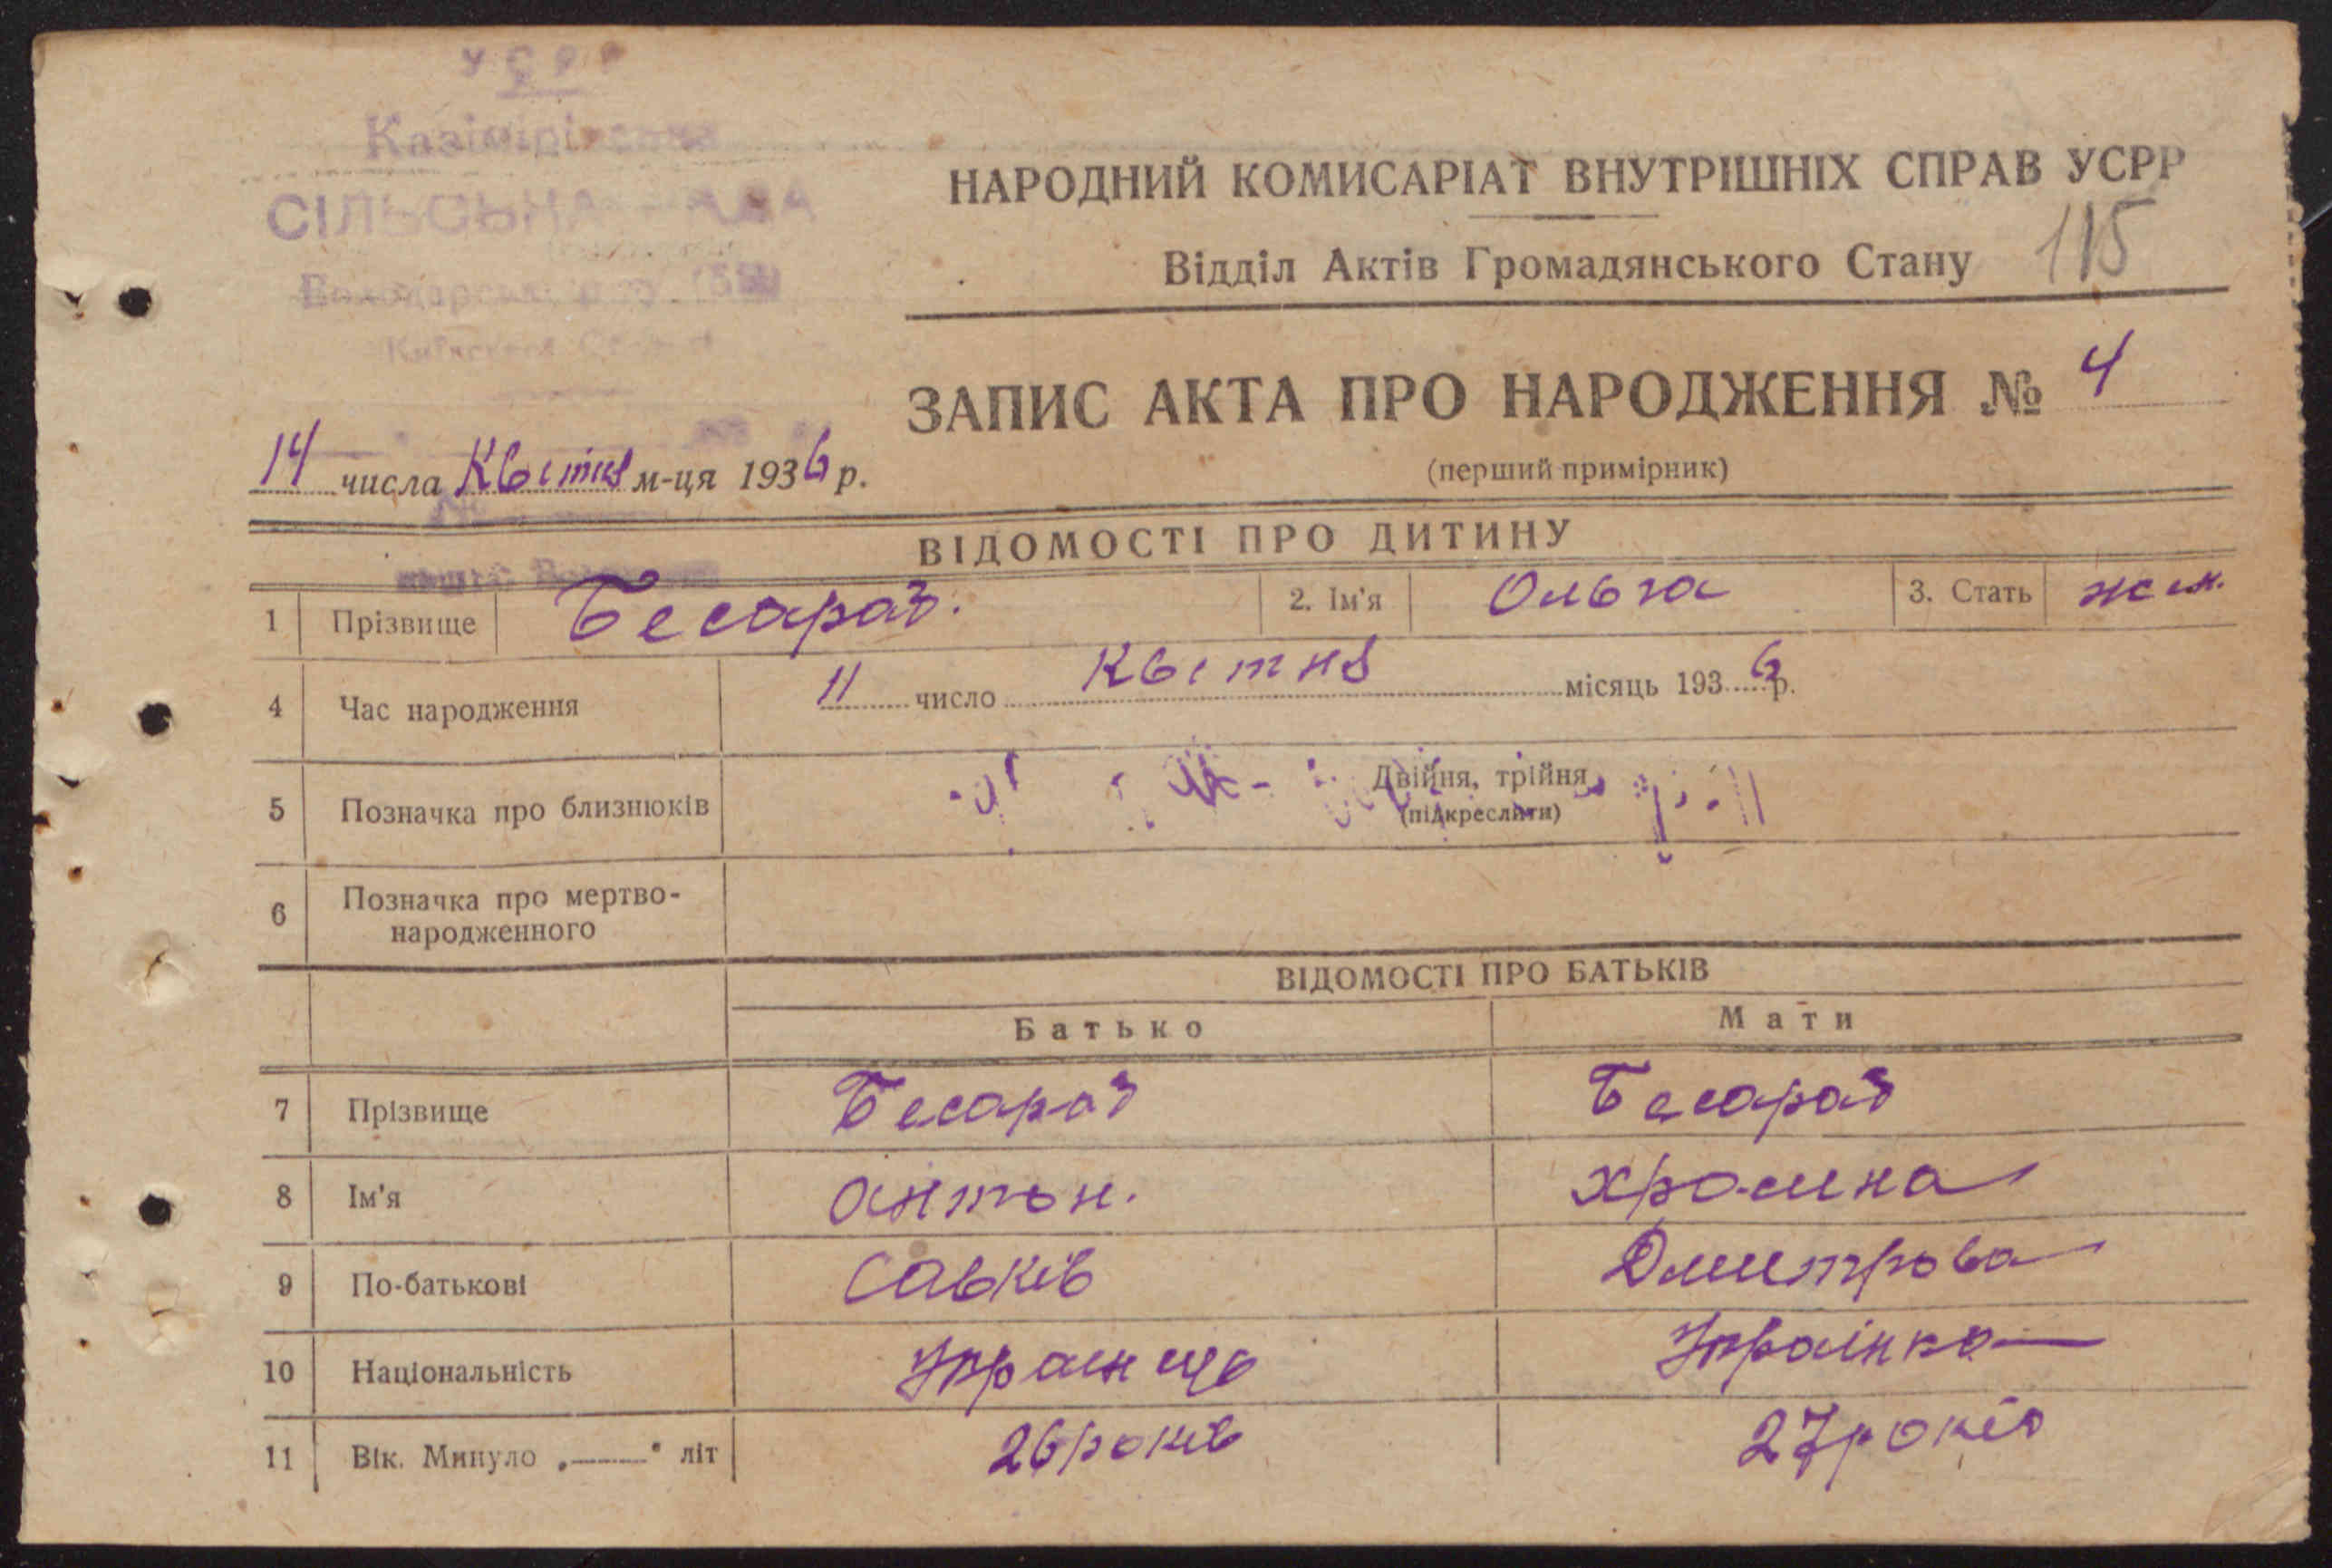 УСРР
СІЛЬСЬКА РАДА
НАРОДНИЙ КОМИСАРІАТ ВНУТРІШНІХ СПРАВ УСРР
Відділ Актів Громадянського Стану 115
ЗАПИС АКТА ПРО НАРОДЖЕННЯ № 4
(перший примірник)
14 числа Квітня м-ця 1936 р.
ВІДОМОСТІ ПРО ДИТИНУ
1 Прізвище Бесараб. 2. Ім'я Ольга 3. Стать жен.
4 Час народження 11 число Квітня місяць 1936 р.
5 Позначка про близнюків Двійня, трійня
(підкреслити)
6 Позначка про мертво-
народженного
ВІДОМОСТІ ПРО БАТЬКІВ
Батько Мати
7 Прізвище Бесараб Бесараб
8 Ім'я Антон.
9 По-батькові Савків Дмитрова
10 Національність Українець Українка
11 Вік. Минуло „——" літ 26 років 27 років